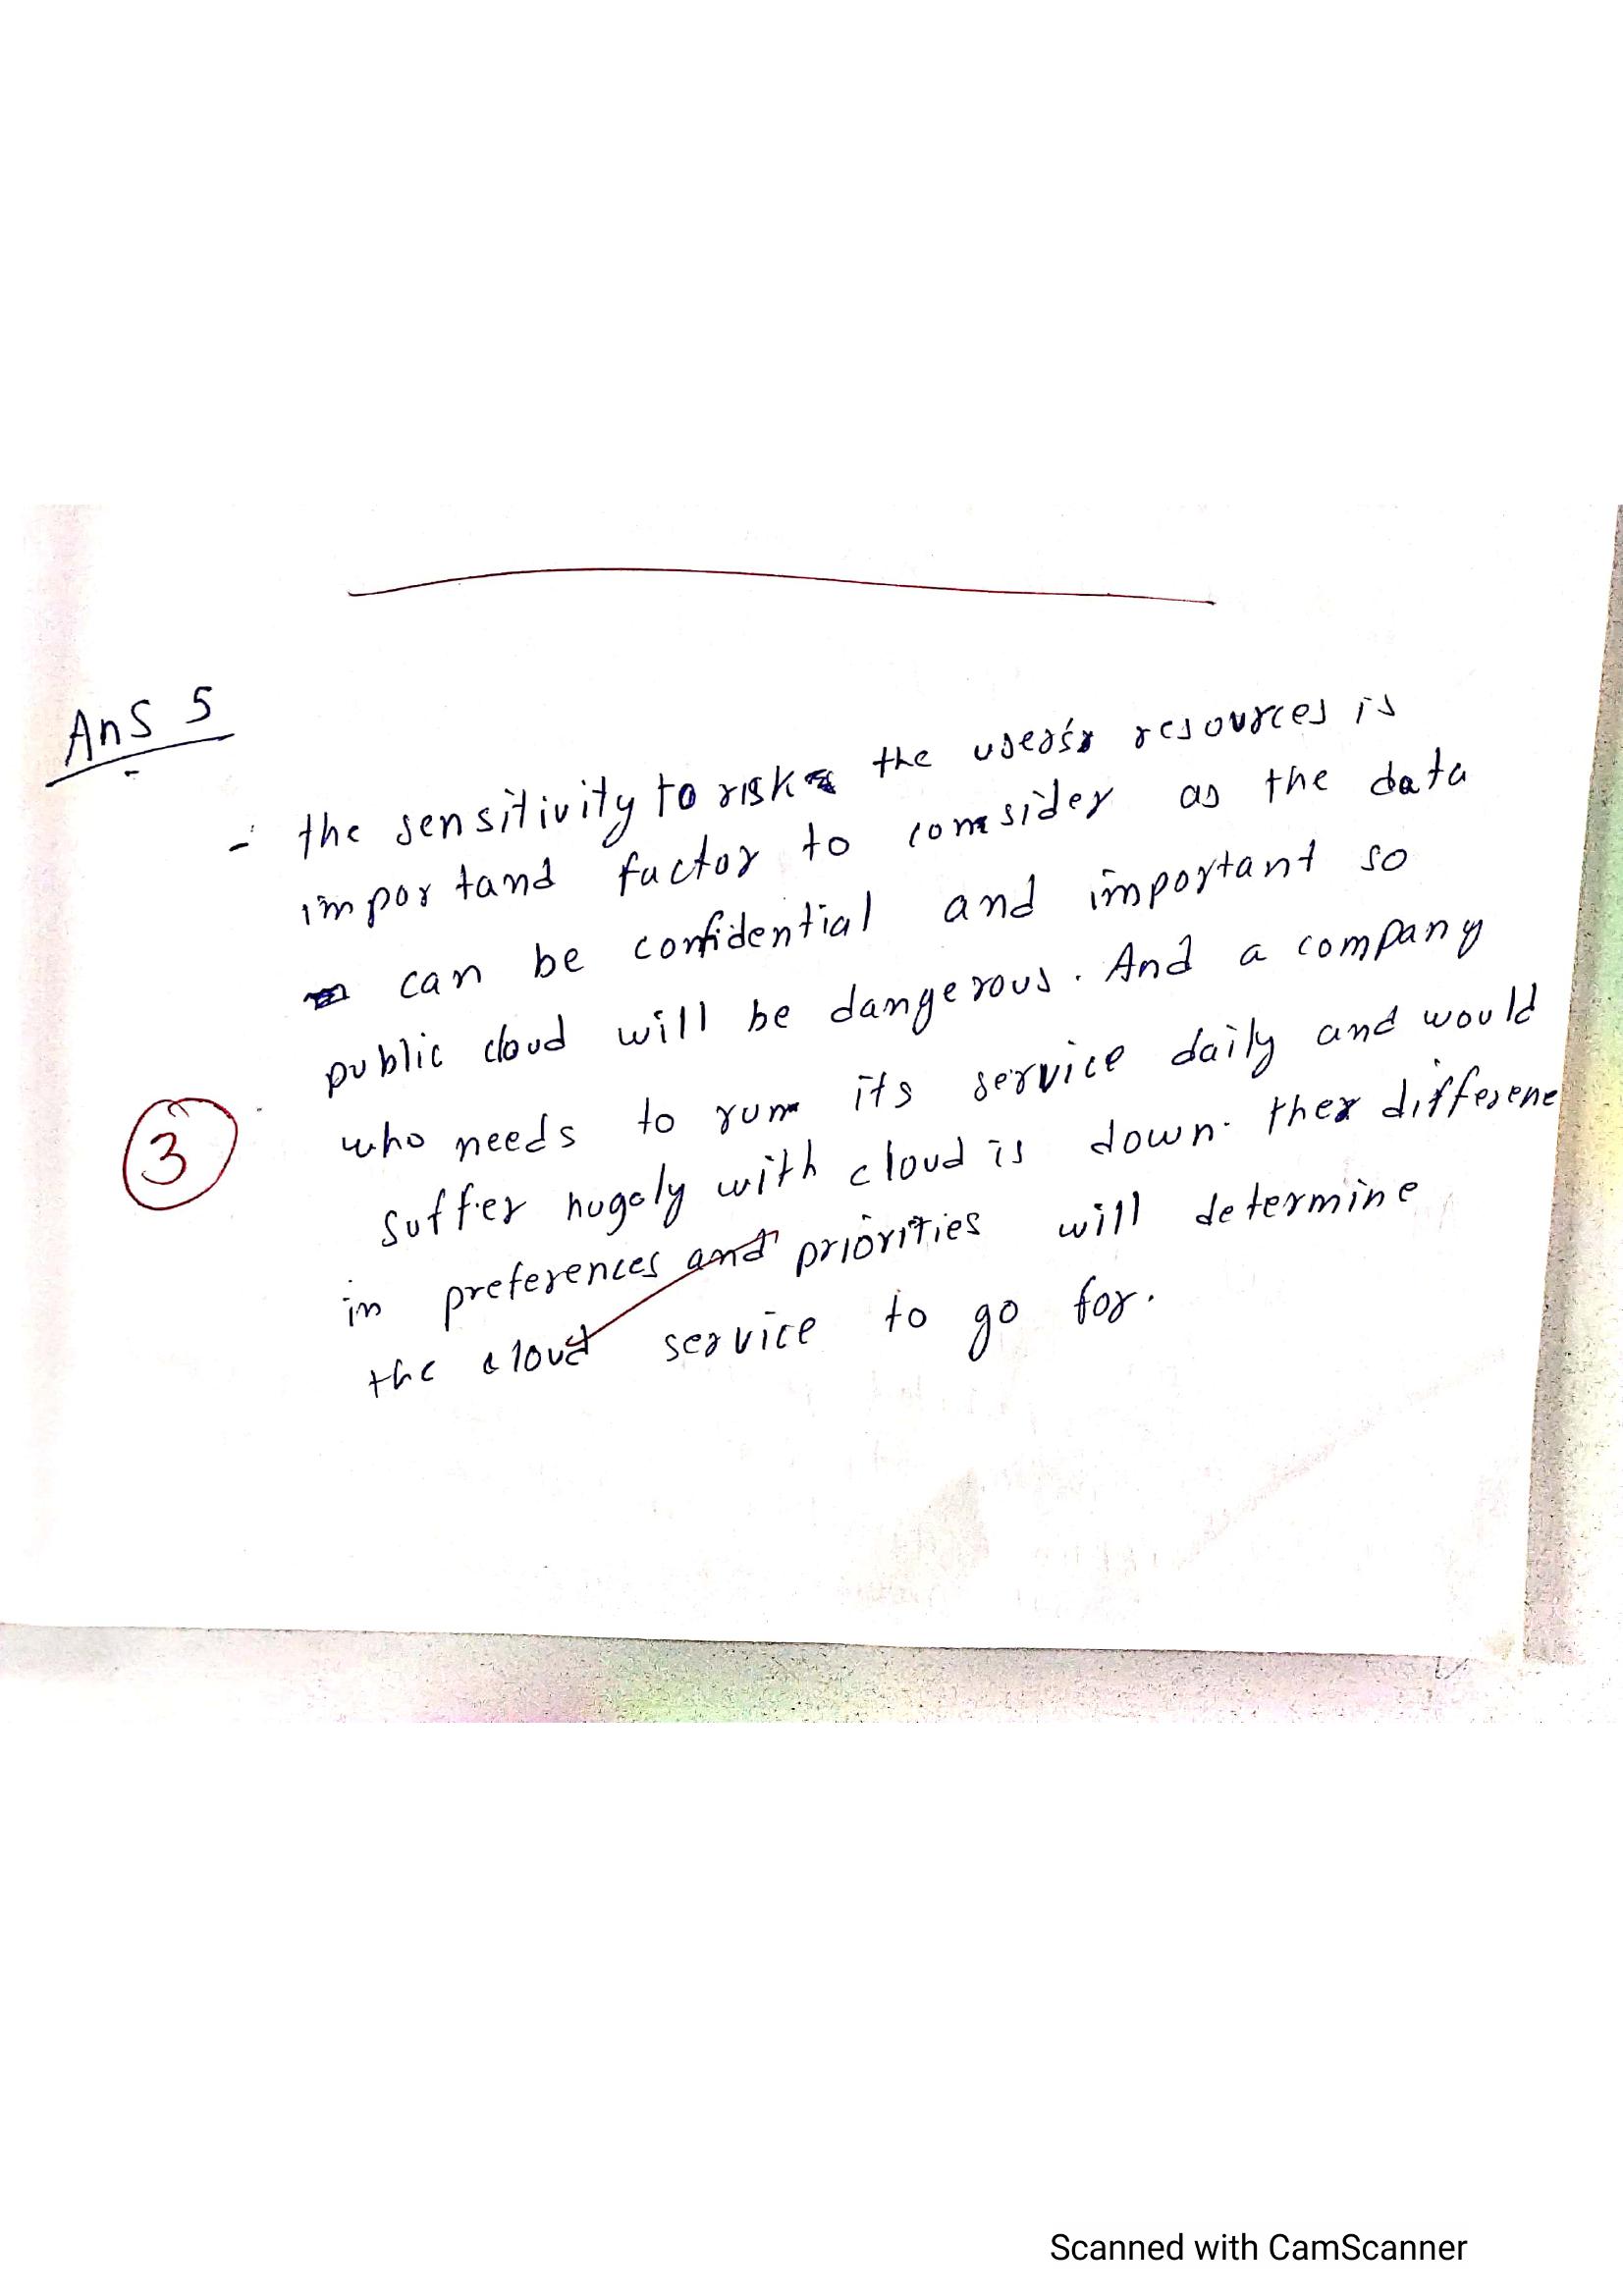 Ans 5
- the sensitivity to risk the user's resources is
importand factor to consider as the data
can be confidential and important so
public cloud will be dangerous. And a company
who needs to run its service daily and would
3
suffer hugely with cloud is down. ther differene
in preferences and priorities will determine
the cloud service to go for.
Scanned with CamScanner